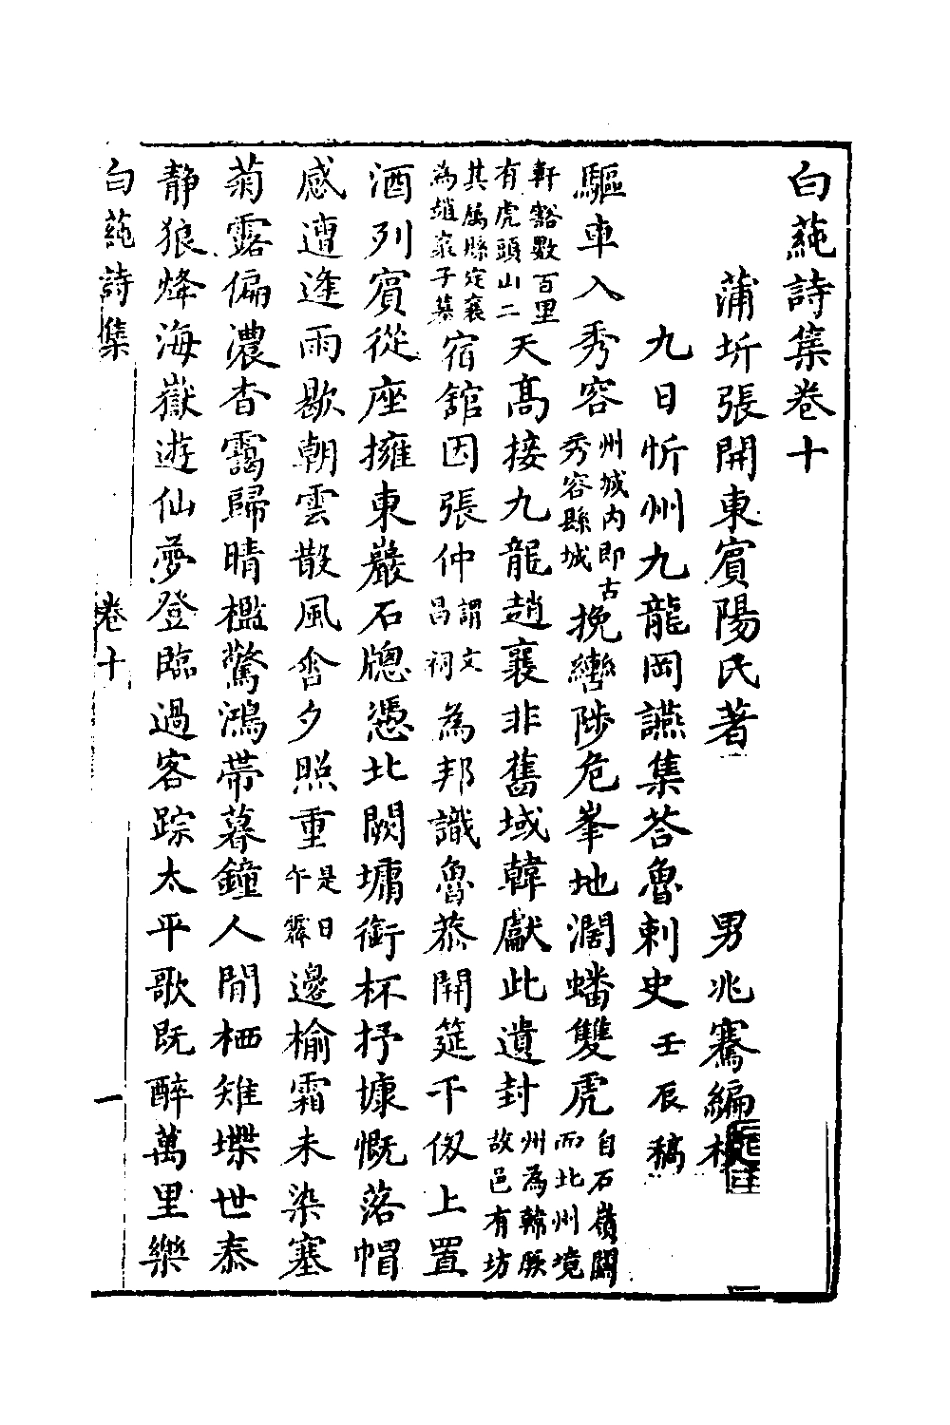 白蒓詩集卷十
蒲圻張開東賓陽氏著　男兆騫編校
九日忻州九龍岡讌集荅魯刺史壬辰稿
驅車入秀容州城內即古秀容縣城挽轡陟危峯地濶蟠雙虎自石嶺關而北州境
軒豁數百里有虎頭山二天高接九龍趙襄非舊域韓獻此遺封州為韓厥故邑有坊
其屬縣定襄為趙襄子墓宿舘因張仲謂文昌祠為邦識魯恭開筵千仭上置
酒列賓從座擁東巖石牕憑北闕墉銜杯抒慷慨落帽
感遭逢雨歇朝雲散風香夕照重是日午霽邊榆霜未染塞
菊露偏濃杳靄歸晴檻驚鴻帶暮鐘人閒栖雉堞世泰
靜狼烽海嶽遊仙夢登臨過客踪太平歌既醉萬里樂
白蒓詩集　卷十　一